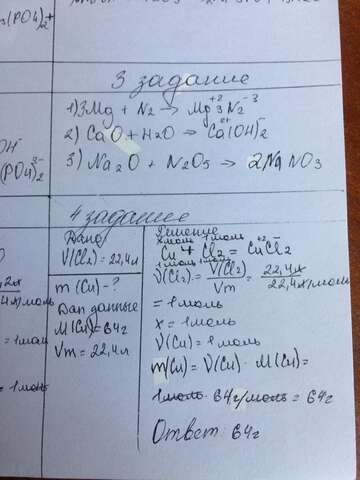 3(PO4)2+
3 задание
1) 3Mg + N2 → Mg3+2N2-3
2) CaO + H2O → Ca2+(OH)2-
3) Na2O + N2O5 → 2NaNO3
OH-
(PO4)2 3-
4 задание
Дано
V(Cl2) = 22,4л
m(Cu) - ?
Доп данные
M(Cu) = 64г
Vm = 22,4л
Решение
xмоль 1моль
Cu + Cl2 = Cu+2Cl2-
1моль 1моль
ν(Cl2) = V(Cl2)/Vm = 22,4л/22,4л/моль
= 1моль
x = 1моль
ν(Cu) = 1моль
m(Cu) = ν(Cu) · M(Cu) =
1моль · 64г/моль = 64г
Ответ 64г
= 1моль